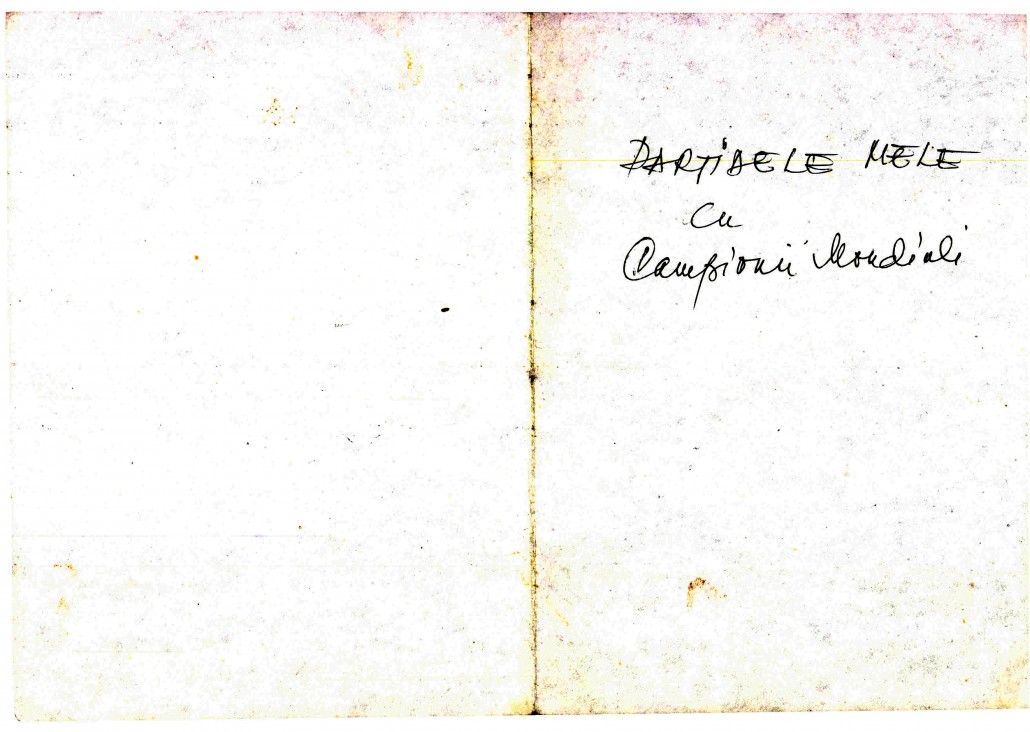 PARTIDELE MELE
Cu
Campionii Mondiali